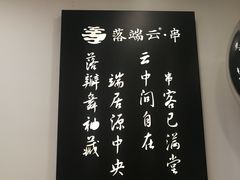 落端云·串
串客已满堂
云中间自在
端居源中央
落瓣舞袖藏